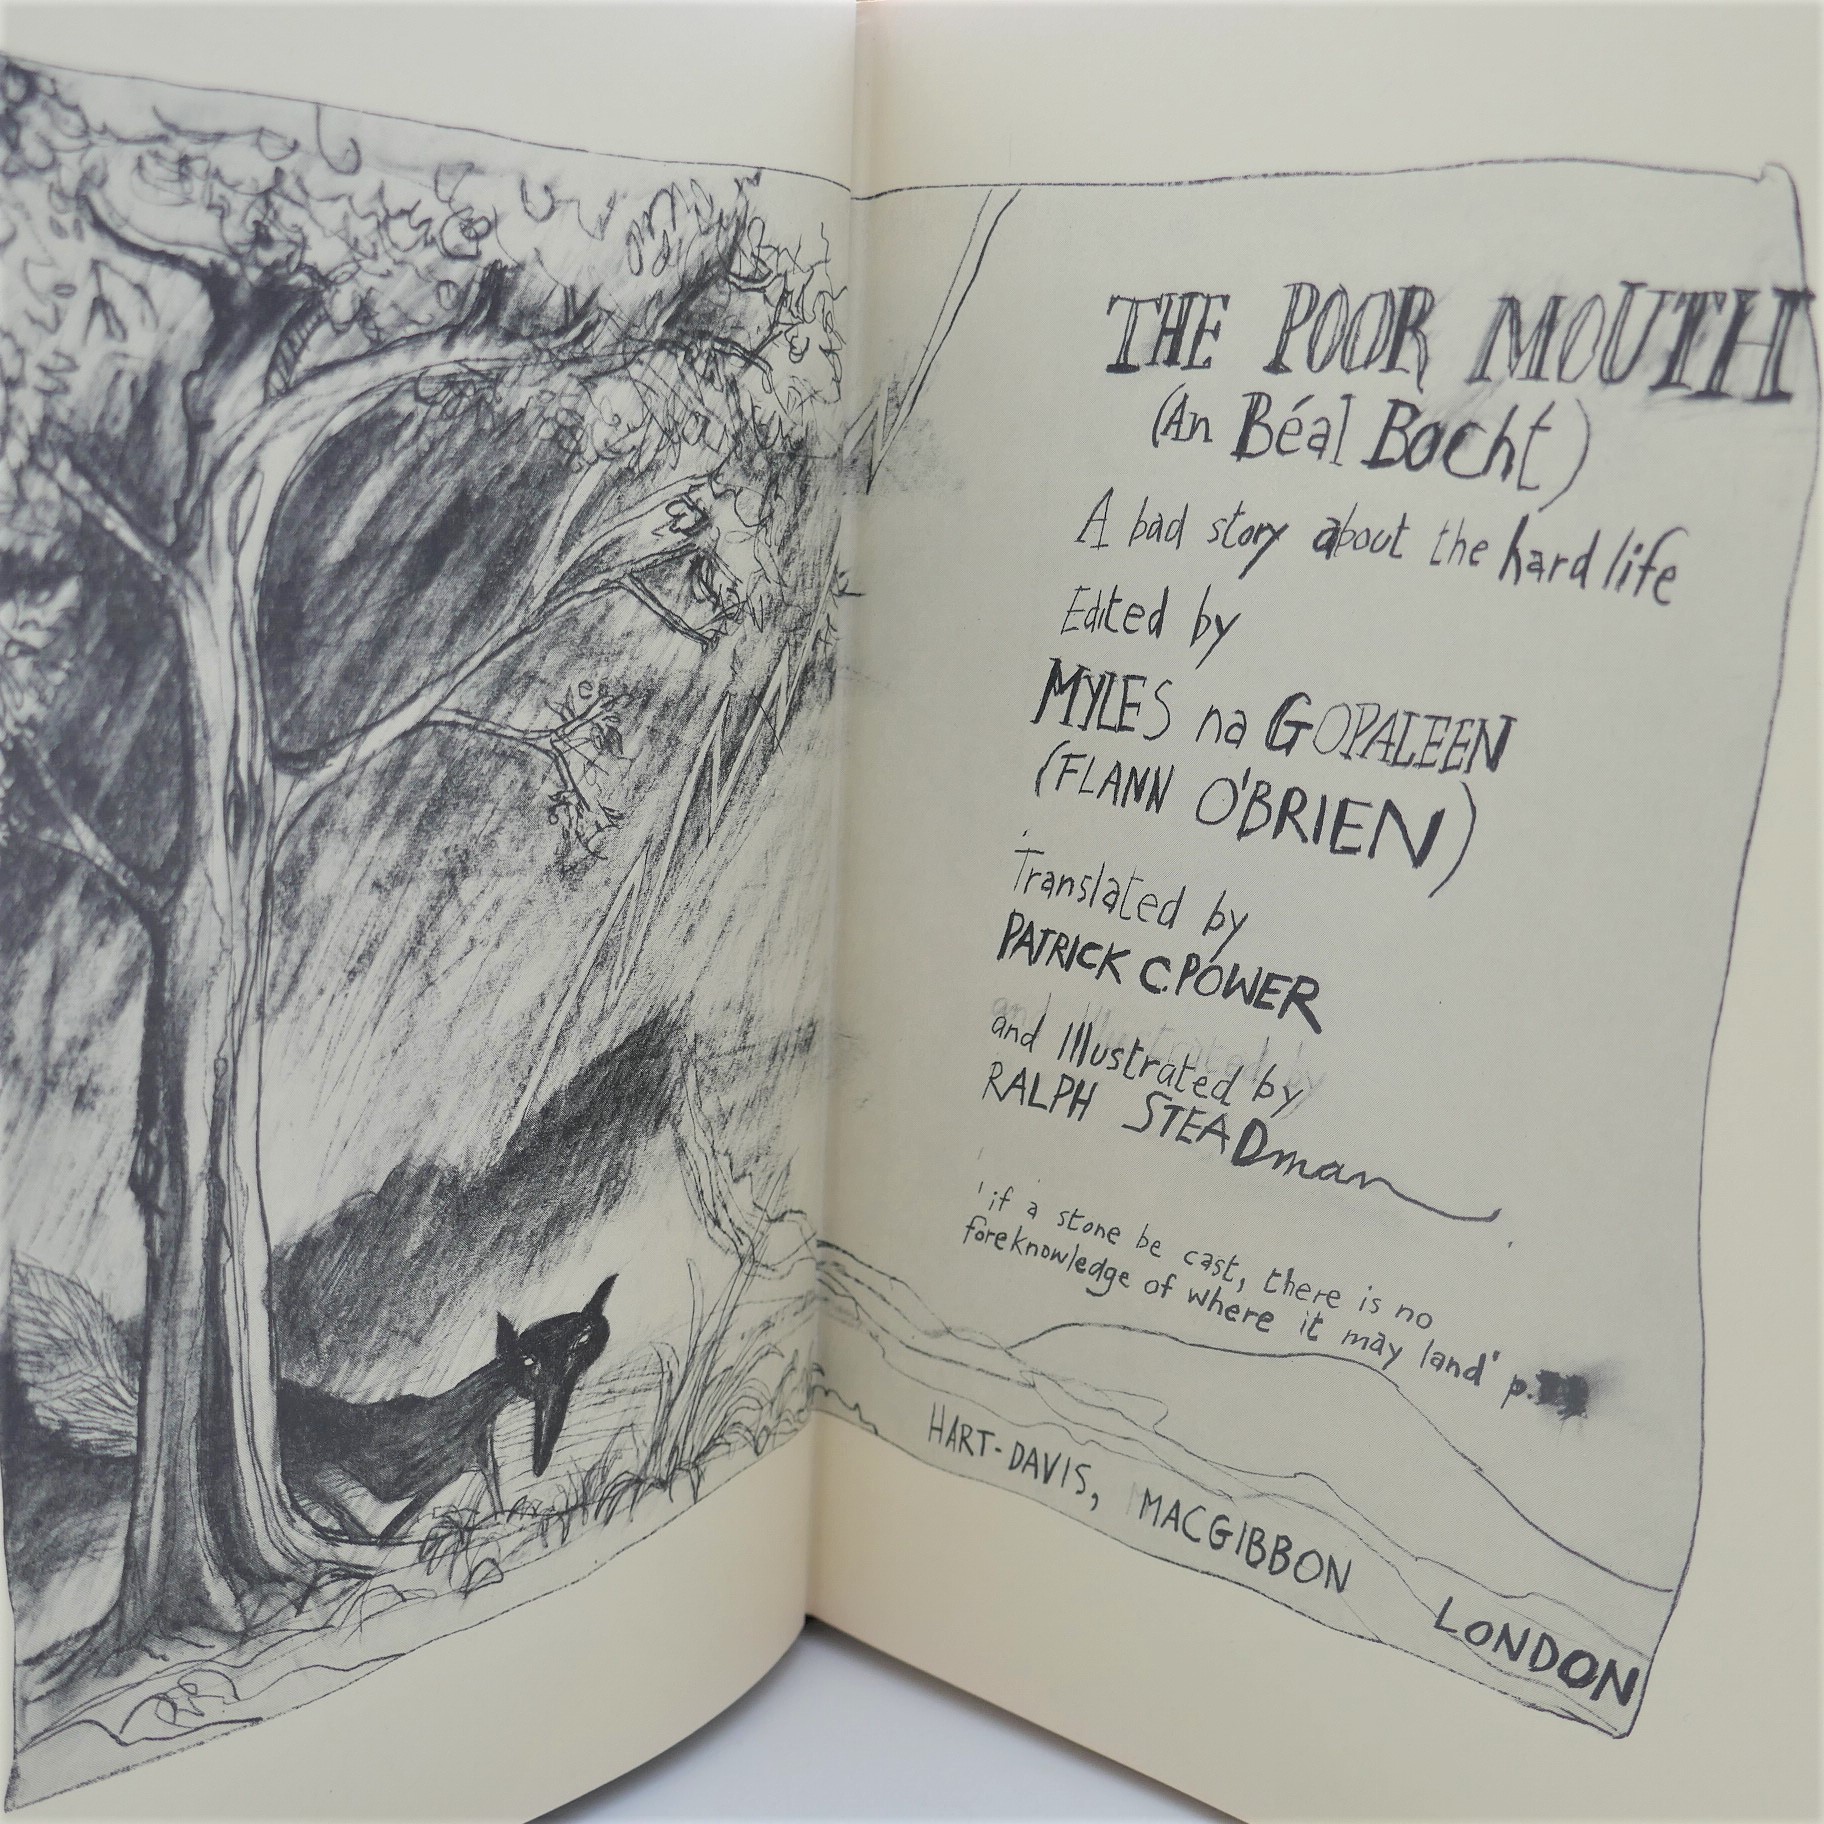 THE POOR MOUTH
(An Béal Bocht)
A bad story about the hard life
Edited by
MYLES na GOPALEEN
(FLANN O'BRIEN)
Translated by
PATRICK C. POWER
and Illustrated by
RALPH STEADman
'if a stone be cast, there is no
foreknowledge of where it may land' p.
HART-DAVIS, MACGIBBON LONDON